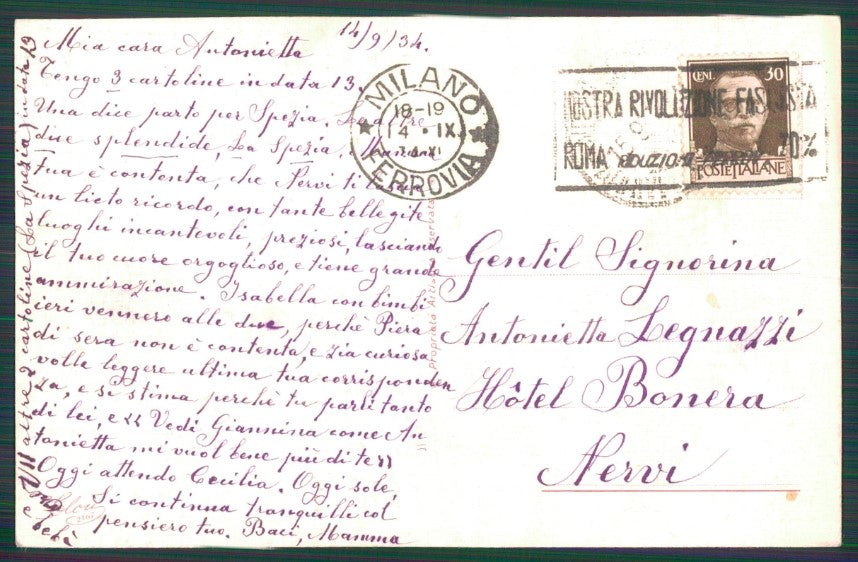 14/9/34.
Mia cara Antonietta
Tengo 3 cartoline in data 13.
Una dice parto per Spezia. Le altre
due splendide, La Spezia, Mamma
tua è contenta, che Nervi ti lascia
un lieto ricordo, con tante belle gite
luoghi incantevoli, preziosi, lasciando
il tuo cuore orgoglioso, e tiene grande
ammirazione. Isabella con bimbi
ieri vennero alle due, perchè Piera
di sera non è contenta, e zia curiosa
volle leggere ultima tua corrisponden
za, e si stima perchè tu parli tanto
di lei, e << Vedi Giannina come An
tonietta mi vuol bene più di te>>
Oggi attendo Cecilia. Oggi sole,
Si continua tranquilli col
pensiero tuo. Baci, Mamma
e bebà
VII altre 2 cartoline (La Spezia) in data 13
MILANO
18-19
14 · IX
FERROVIA
MOSTRA RIVOLUZIONE FASCISTA
ROMA RIDUZIONI 70%
CENT. 30
POSTE ITALIANE
Proprietà Artistica Riservata
Gentil Signorina
Antonietta Legnazzi
Hôtel Bonera
Nervi